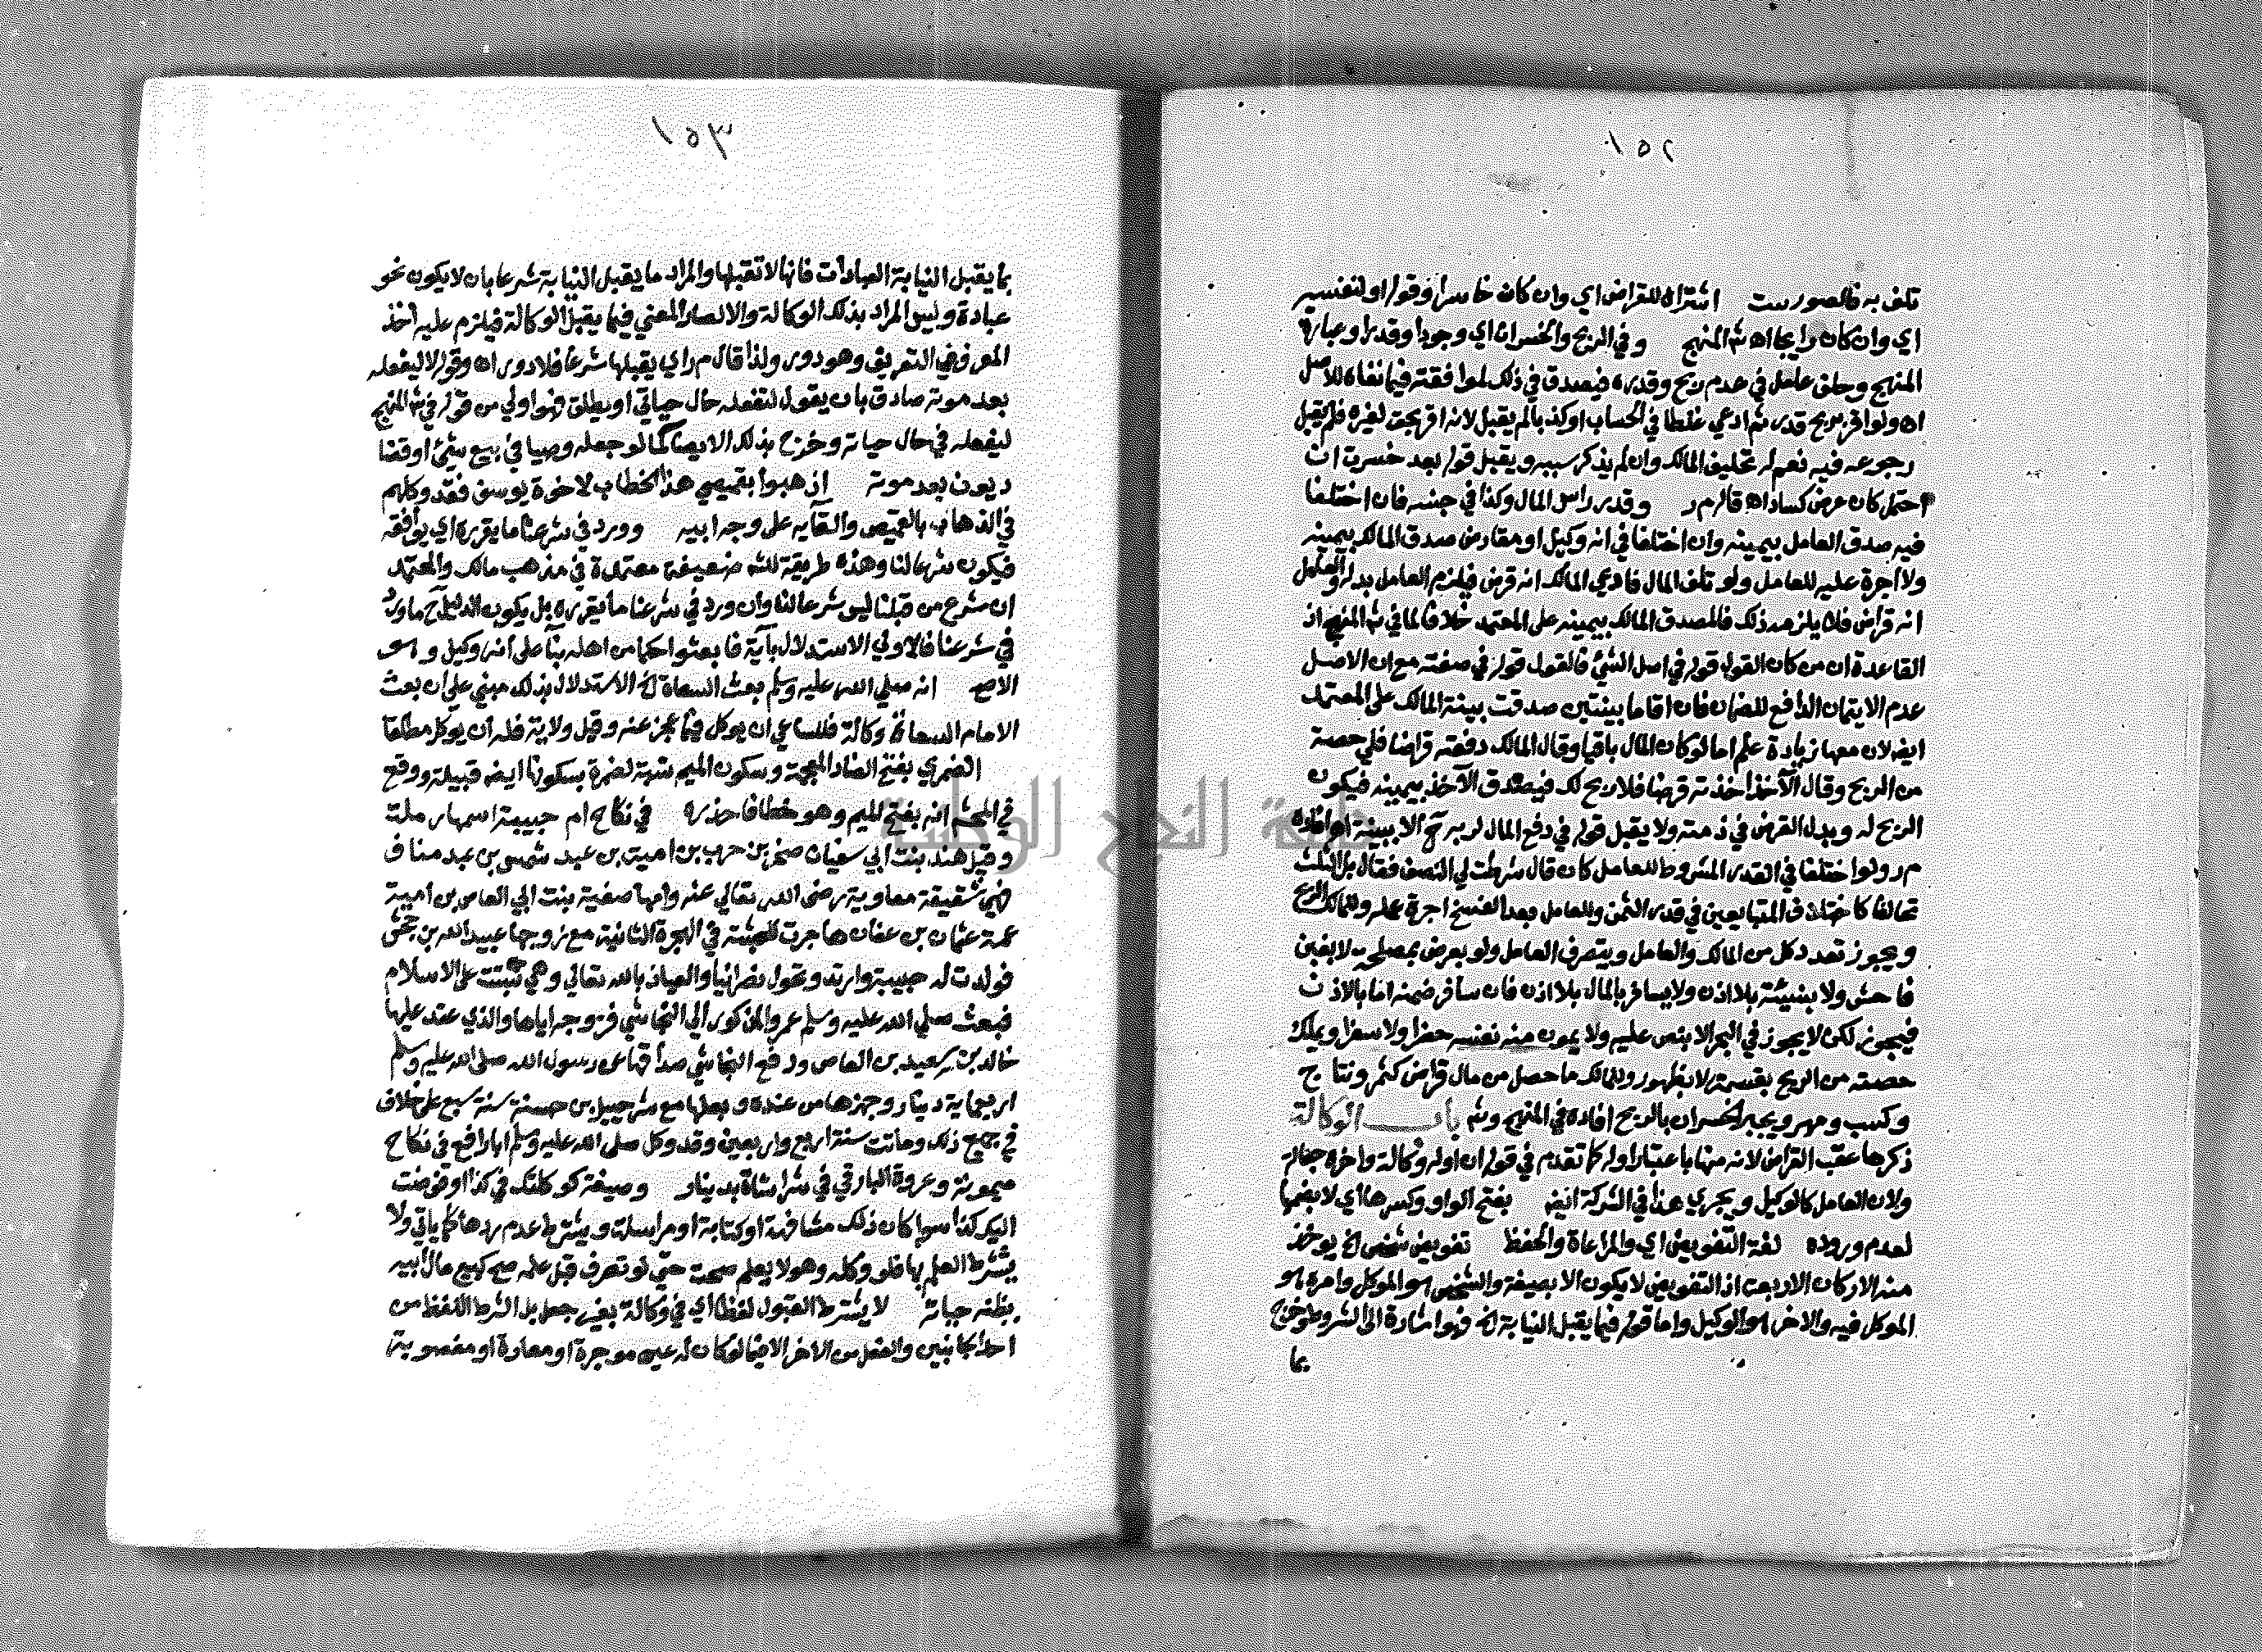 ١٥٢
تلف به فالصور ست اشتراه للقراض اي وان كان خاسرا وقوله او لنفسي
اي وان كان رابحا اه ش المنهج وفي الربح والخسران اي وجودا وقدرا وعبارة
المنهج وحلف عامل في عدم ربح وقدره فيصدق في ذلك لموافقته فيما نفاه للاصل
اه ولو اقر بربح قدر ثم ادعي غلطا في الحساب او كذبا لم يقبل لانه اقر بحق لغيره فلم يقبل
رجوعه فيه نعم له تحليف المالك وان لم يذكر سببه ويقبل قوله بعد خسرت ان
احتمل كان عرض كساد اه قاله م ر وقدر راس المال وكذا في جنسه فان اختلفا
فيه صدق العامل بيمينه وان اختلفا في انه وكيل او مقارض صدق المالك بيمينه
ولا اجرة عليه للعامل ولو تلف المال فادعي المالك انه قرض فيلزم العامل بدله والعامل
انه قراض فلا يلزمه ذلك فالمصدق المالك بيمينه على المعتمد خلافا لما في ش المنهج اذ
القاعدة ان من كان القول قوله في اصل الشيئ فالقول قوله في صفته مع ان الاصل
عدم الايتمان الدافع للضمان فان اقاما بينتين صدقت بينة المالك على المعتمد
ايضا لان معها زيادة علم اما لو كان المال باقيا وقال المالك دفعته قراضا فلي حصة
من الربح وقال الآخذ اخذته قرضا فلا ربح لك فيصدق الآخذ بيمينه فيكون
الربح له وبدل القرض في ذمته ولا يقبل قوله في دفع المال لربه ح الا ببينة اه افاده
م ر ولو اختلفا في القدر المشروط للعامل كان قال شرطت لي النصف فقال بل الثلث
تحالفا كاختلاف المتبايعين في قدر الثمن وللعامل بعد الفسخ اجرة عمله وللمالك الربح
ويجوز تعدد كل من المالك والعامل ويتصرف العامل ولو بعرض بمصلحة لا بغبن
فاحش ولا بنسيئة بلا اذن ولا يسافر بالمال بلا اذن فان سافر ضمنه اما بالاذن
فيجوز لكن لا يجوز في البحر الا بنص عليه ولا يمون منه نفسه حضرا ولا سفرا ويملك
حصته من الربح بقسمة لا بظهور وللمالك ما حصل من مال قراض كثمر ونتاج
وكسب ومهر ويجبر الخسران بالربح افاده في المنهج وش باب الوكالة
ذكرها عقب القراض لانه منها باعتبار اوله كما تقدم في قوله ان اوله وكالة واخره جعالة
ولان العامل كالوكيل ويجري هذا في الشركة ايضا بفتح الواو وكسرها اي لا بضمها
لعدم وروده لغة التفويض اي والمراعاة والحفظ تفويض شخص الخ يوخذ
منه الاركان الاربعة اذ التفويض لا يكون الا بصيغة والشخص هو الموكل وامره هو
الموكل فيه والاخر هو الوكيل واما قوله فيما يقبل النيابة الخ فهو اشارة الى الشروط وخرج
بما
١٥٣
بما يقبل النيابة العبادات فانها لا تقبلها والمراد ما يقبل النيابة شرعا بان لا يكون نحو
عبادة وليس المراد بذلك الوكالة والا لصار المعني فيما يقبل الوكالة فيلزم عليه اخذ
المعرف في التعريف وهو دور ولذا قال م ر اي يقبلها شرعا فلا دور اه وقوله لا ليفعله
بعد موته صادق بان يقول لتفعله حال حياتي او يطلق فهو اولي من قوله في ش المنهج
ليفعله في حال حياته وخرج بذلك الايصا كما لو جعله وصيا في بيع شيئ او قضا
ديون بعد موته اذهبوا بقميصي هذا الخطاب لاخوة يوسف فقد وكلهم
في الذهاب بالقميص والقآيه على وجه ابيه وورد في شرعنا ما يقرره اي يوافقه
فيكون شرعا لنا وهذه طريقة للش ضعيفة معتمدة في مذهب مالك والمعتمد
ان شرع من قبلنا ليس شرعا لنا وان ورد في شرعنا ما يقرره بل يكون الدليل ح ما ورد
في شرعنا فالاولي الاستدلال بآية فابعثوا حكما من اهله بنآ على انه وكيل وهو
الاصح انه صلي الله عليه وسلم بعث السعاة الخ الاستدلال بذلك مبني على ان بعث
الامام السعاة وكالة فللساعي ان يوكل فيما عجز عنه وقيل ولاية فله ان يوكل مطلقا
الضمري بفتح الضاد المعجمة وسكون الميم نسبة لضمرة بسكونها ايضا قبيلة ووقع
في المحشي انه بفتح الميم وهو خطا فاحذره في نكاح ام حبيبة اسمها رملة
وقيل هند بنت ابي سفيان صخر بن حرب بن امية بن عبد شمس بن عبد مناف
فهي شقيقة معاوية رضى الله تعالي عنه وامها صفية بنت ابي العاص بن امية
عمة عثمان بن عفان هاجرت للحبشة في الهجرة الثانية مع زوجها عبيد الله بن جحش
فولدت له حبيبة وارتد وتحول نصرانيا والعياذ بالله تعالي وهي ثبتت على الاسلام
فبعث صلي الله عليه وسلم عمر والمذكور الي النجاشي فزوجه اياها والذي عقد عليها
خالد بن سعيد بن العاص ودفع النجاشي صداقها عن رسول الله صلى الله عليه وسلم
اربعماية دينار وجهزها من عنده وبعثها مع شرحبيل بن حسنة سنة سبع على خلاف
في جميع ذلك وماتت سنة اربع واربعين وقد وكل صلى الله عليه وسلم ابا رافع في نكاح
ميمونة وعروة البارقي في شرا شاة بدينار وصيغة كوكلتك في كذا او فوضت
اليك كذا سوا كان ذلك مشافهة او كتابة او مراسلة ويشترط عدم ردها كما ياتي ولا
يشترط العلم بها فلو وكله وهو لا يعلم صحت حتي لو تصرف قبل علمه صح كبيع مال ابيه
يظنه حياته لا يشترط القبول لفظا اي في وكالة بغير جعل بل الشرط اللفظ من
احد الجانبين والفعل من الاخر الا فيما لو كان له عين موجرة او معارة او مغصوبة